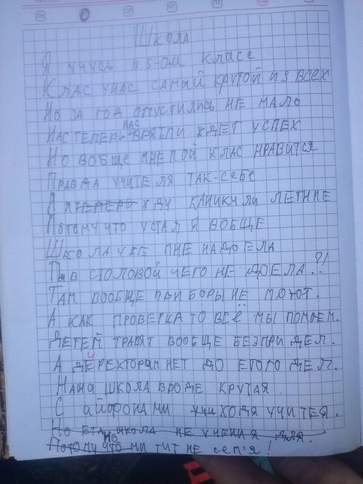 Школа
Я учусь в 5-ом класе
Клас унас самый крутой из всех
Но за год опустились не мало
Нас теперь нас врятли ждет успех
Но вообще мне мой клас нравится
Правда учителя так-себе
А теперь жду каникулы летние
Потому что устал я вообще
Школа уже мне надоела
Да в столовой чего не доела?!
Там вообще приборы не моют.
А как проверка то всё мы помоем.
Детей травят вообще безпридел.
А дерехторам нет до етого дел.
Наша школа вроде крутая
С айфонами учиходя учится.
Но ета школа не учения для.
Потому что но ми тит не сепя!